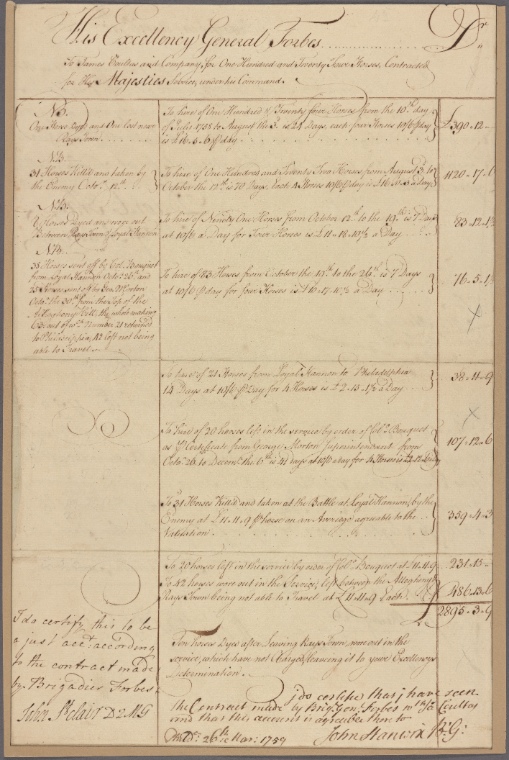 His Excellency General Forbes Dr.
To James Coultas and Company, for One Hundred and Seventy Four Horses, Contracted
for His Majesties Service, under his Command.
NB.
One Horse Dyed and One lost near
Rays Town
To hire of One Hundred & Twenty four Horses from the 10th day
of July 1758 to August the 3. is 24 Days, each four Horses 10/6 P day
is £16.5.6 P day
£390.12.
NB.
31 Horses Kill'd and taken by
the Enemy Octor. 12th.
To hire of One Hundred and Twenty Two Horses from August 3 to
October the 12th is 70 Days Each 4 Horses 10/6 P day is £16..0..3 a day
1120.17.6
NB.
Horses Dyed and wore out
between Rays Town & Loyal Hannon
To hire of Ninety One Horses from October 12th to the 19th is 7 Days
at 10/6 a Day for Four Horses is £11.18.10½ a Day
83.12.1½
NB.
38 Horses sent off by Col. Bouquet
from Loyal Hannon Octor. 26th and
25 Horses sent off by
Octor. the 30th from the Top of the
Allegheny Hill, the whole making
63 and of wch. Number 21 returned
to Philadelphia, 42 left not being
able to Travel
To hire of 83 Horses from October the 19th to the 26th is 7 Days
at 10/6 P day for four Horses is £10.17.10½ a day
76.5.1½
To hire of 21 Horses from Loyal Hannon to Philadelphia
14 Days at 10/6 P Day for 4 Horses is £2.15.1½ a Day
38.11.9
To hire of 20 horses left in the service by order of Colo. Bouquet
as P Certificate from George Morton Superintendant from
Octor. 26 to Decemr. the 6th is 41 days at 10/6 a day for 4 Horses is £2.12.6 P day
107.12.6
To 31 Horses Kill'd and taken at the Battle at Loyal Hannon, by the
Enemy at £11.11.9 P horse on an Average agreeable to the
Valuation
359.4.3
To 20 horses left in the service by order of Colo. Bouquet at £11.11.9
231.15.
To 42 horses wore out in the Service, left between the Allegheny &
Rays Town being not able to Travel at £11.11.9 Each
486.13.6
2895.3.9
Ten Horses Dyed after Leaving Rays Town, wore out in the
service, which have not charged, leaving it to your Excellencys
Determination
I do certify this to be
a just acct. according
to the contract made
by Brigadier Forbes
John St. Clair D2MG
I do certifie that I have seen
the Contract made by Brig. Gen. Forbes wth Mr. Coultas
and that this account is agreable there to
26th Mar: 1759
John Stanwix B: G: